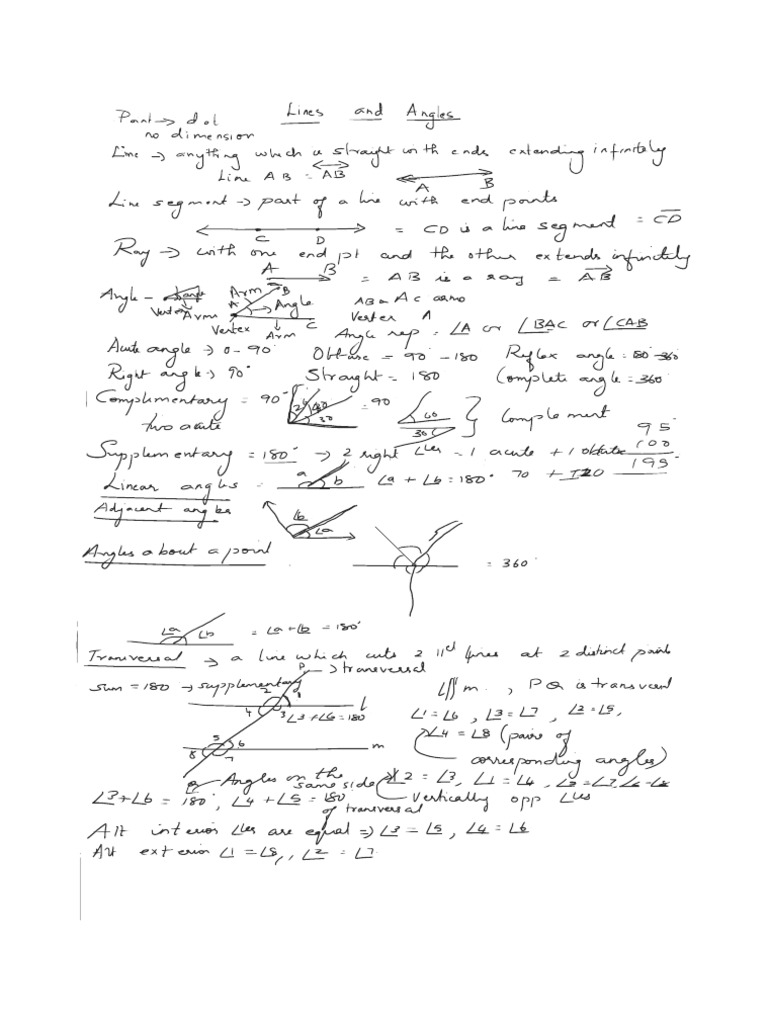 Lines and Angles
Point → dot
no dimension
Line → anything which is straight with ends extending infinitely
Line AB = AB
A B
Line segment → part of a line with end points
C D = CD is a line segment = CD
Ray → with one end pt and the other extends infinitely
A B = AB is a ray = AB
Angle - Arm B
Vertex Arm A Angle AB & AC arms
Vertex Arm C Vertex A
Angle rep = ∠A or ∠BAC or ∠CAB
Acute angle → 0-90° Obtuse = 90°-180 Reflex angle = 180-360
Right angle → 90° Straight = 180 Complete angle = 360
Complimentary = 90° 30 = 90 60 30 } Complement
two acute
95
Supplementary = 180° → 2 right ∠les = 1 acute + 1 obtuse 100
Linear angles = a b ∠a + ∠b = 180° 70 + 120 195
Adjacent angles ∠b ∠a
Angles about a point = 360°
∠a ∠b = ∠a+∠b = 180°
Tranversal → a line which cuts 2 llel lines at 2 distinct points
P → transversal
Sum = 180 → supplementary 2 1 L∥m, PQ is transversal
4 3 ∠3+∠6=180 l ∠1=∠6, ∠3=∠7, ∠2=∠5,
5 6 m ∠4=∠8 (pair of
8 7 corresponding angles)
Q Angles on the same side of transversal ∠2=∠3, ∠1=∠4,
∠3+∠6 = 180°, ∠4+∠5=180 Vertically opp ∠les
Alt interior ∠les are equal ⇒ ∠3=∠5, ∠4=∠6
Alt exterior ∠1=∠8,, ∠2=∠7